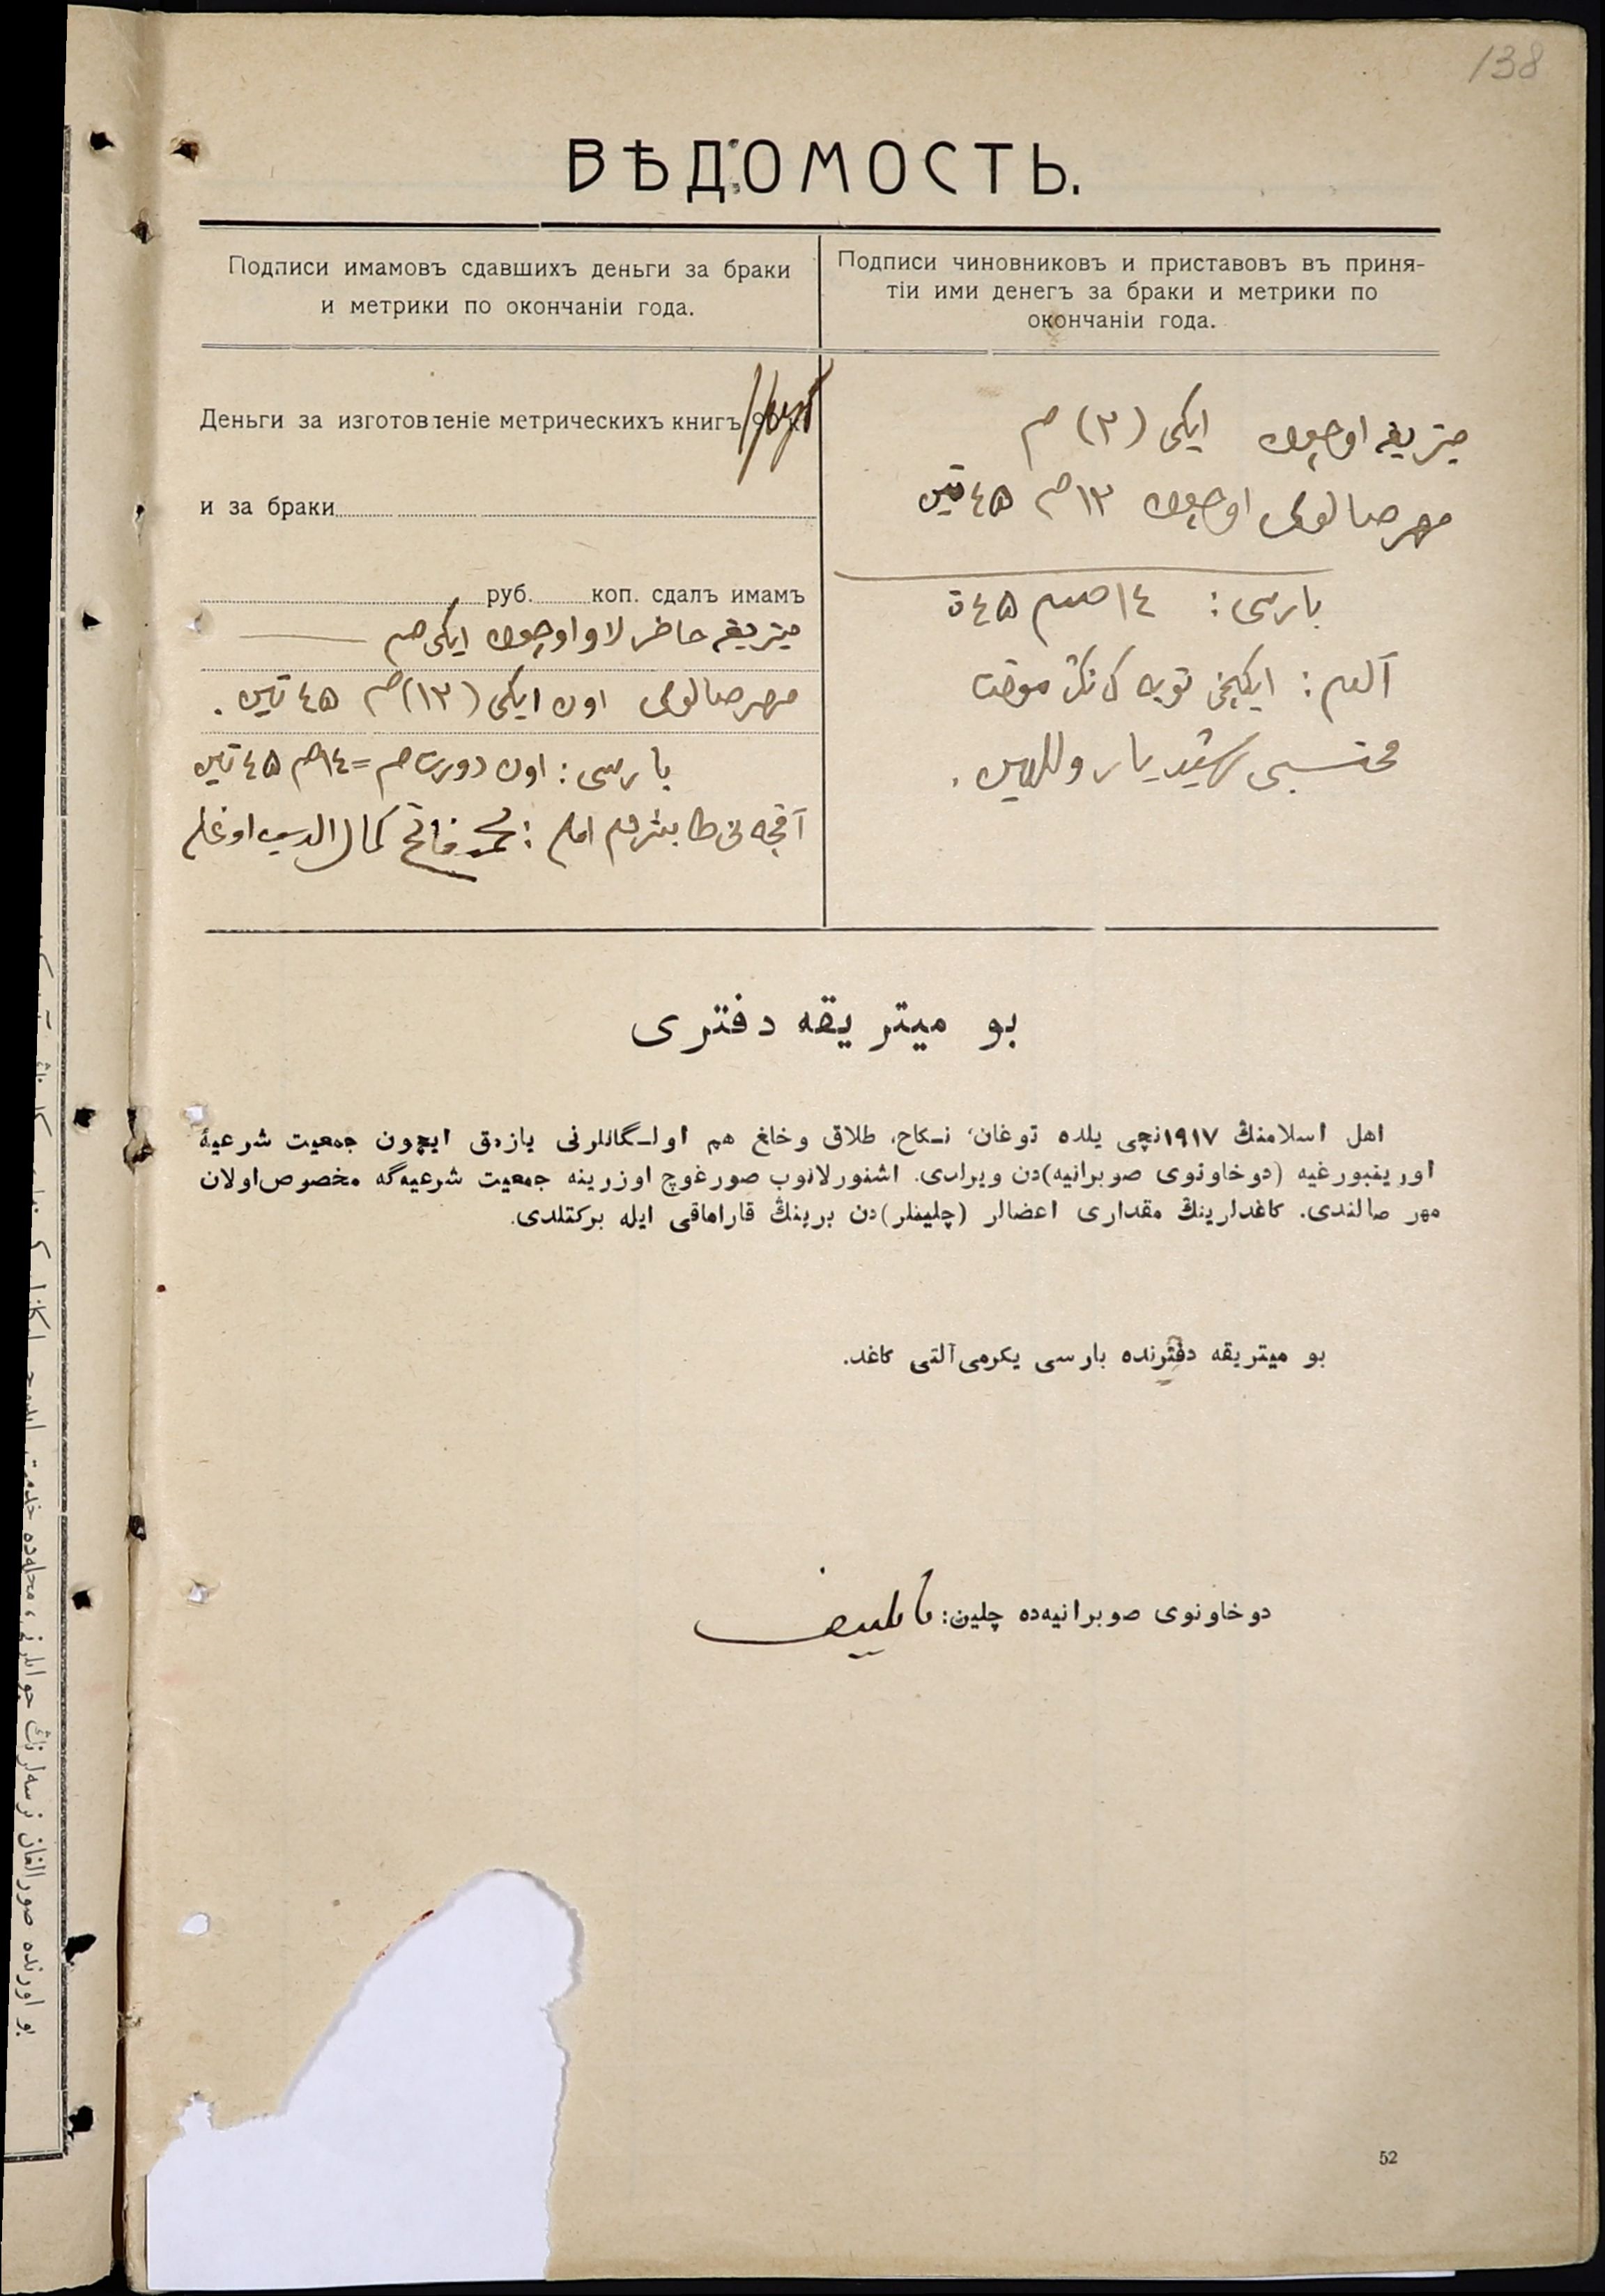 138
ВѢДОМОСТЬ.
Подписи имамовъ сдавшихъ деньги за браки
и метрики по окончаніи года.
Подписи чиновниковъ и приставовъ въ приня-
тіи ими денегъ за браки и метрики по
окончаніи года.
Деньги за изготовленіе метрическихъ книгъ
и за браки
руб. коп. сдалъ имамъ
ميتريقه حاضرلاو اوچون ايكى صم
مهر صالولى اون ايكى (١٢) صم ٤٥ تين.
بارسى: اون دورت صم = ١٤ صم ٤٥ تين
آقچه نى طابشردم امام: محمد فاتح كمال الدين اوغلى
ميتريقه اوچون ايكى (٢) صم
مهر صالولى اوچون ١٢ صم ٤٥ تين
بارسى: ١٤ صم ٤٥ ت
آلدم: ايكنچى توبه ك نڭ موقت
محتسبى رشيد
بو ميتريقه دفترى
اهل اسلامنڭ ١٩١٧نچى يلده توغان، نـكاح، طلاق وخلغ هم اولـگانلرنى يازمق ايچون جمعيت شرعيۀ
اورينبورغيه (دوخاونوى صوبرانيه)دن ويرلدى. اشنورلانوب صورغوچ اوزرينه جمعيت شرعيه‌گه مخصوص اولان
مهر صالندى. كاغدلرينڭ مقدارى اعضالر (چلينلر)دن برينڭ قاراماقى ايله بركتلدى.
بو ميتريقه دفترنده بارسى يكرمى آلتى كاغد.
دوخاونوى صوبرانيه‌ده چلين:
52
بو اورنده صورالغان نرسه‌لرنڭ جوابلرنى، محله‌ده خدمت